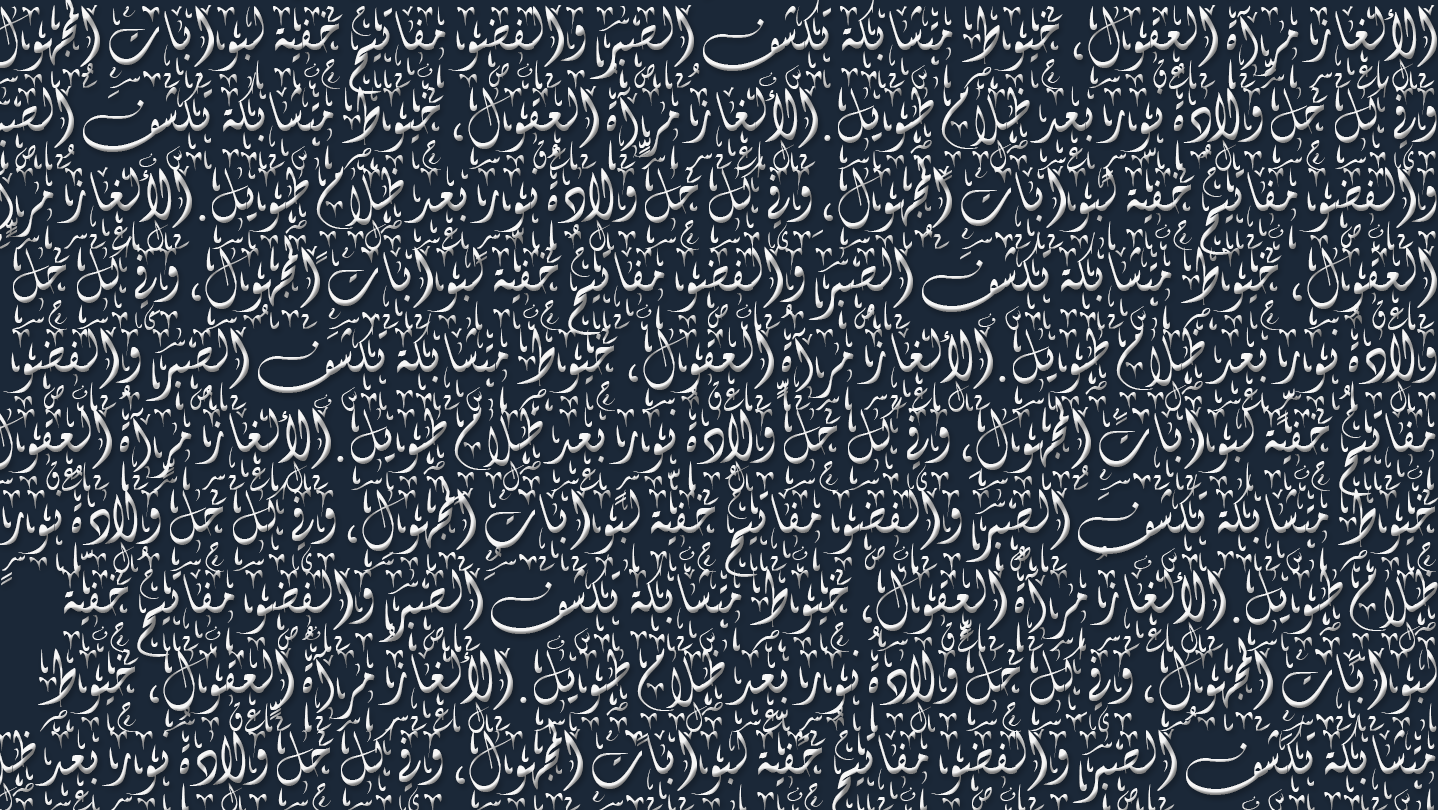 الألغاز مرآة العقول، خيوط متشابكة تكشف الصبر والفضول مفاتيح خفية لبوابات المجهول
وفي كل حل ولادة نور بعد ظلام طويل. الألغاز مرآة العقول، خيوط متشابكة تكشف الصبر
والفضول مفاتيح خفية لبوابات المجهول، وفي كل حل ولادة نور بعد ظلام طويل. الألغاز مرآة
العقول، خيوط متشابكة تكشف الصبر والفضول مفاتيح خفية لبوابات المجهول، وفي كل حل
ولادة نور بعد ظلام طويل. الألغاز مرآة العقول، خيوط متشابكة تكشف الصبر والفضول
مفاتيح خفية لبوابات المجهول، وفي كل حل ولادة نور بعد ظلام طويل. الألغاز مرآة العقول
خيوط متشابكة تكشف الصبر والفضول مفاتيح خفية لبوابات المجهول، وفي كل حل ولادة نور
ظلام طويل. الألغاز مرآة العقول، خيوط متشابكة تكشف الصبر والفضول مفاتيح خفية
لبوابات المجهول، وفي كل حل ولادة نور بعد ظلام طويل. الألغاز مرآة العقول، خيوط
متشابكة تكشف الصبر والفضول مفاتيح خفية لبوابات المجهول، وفي كل حل ولادة نور بعد